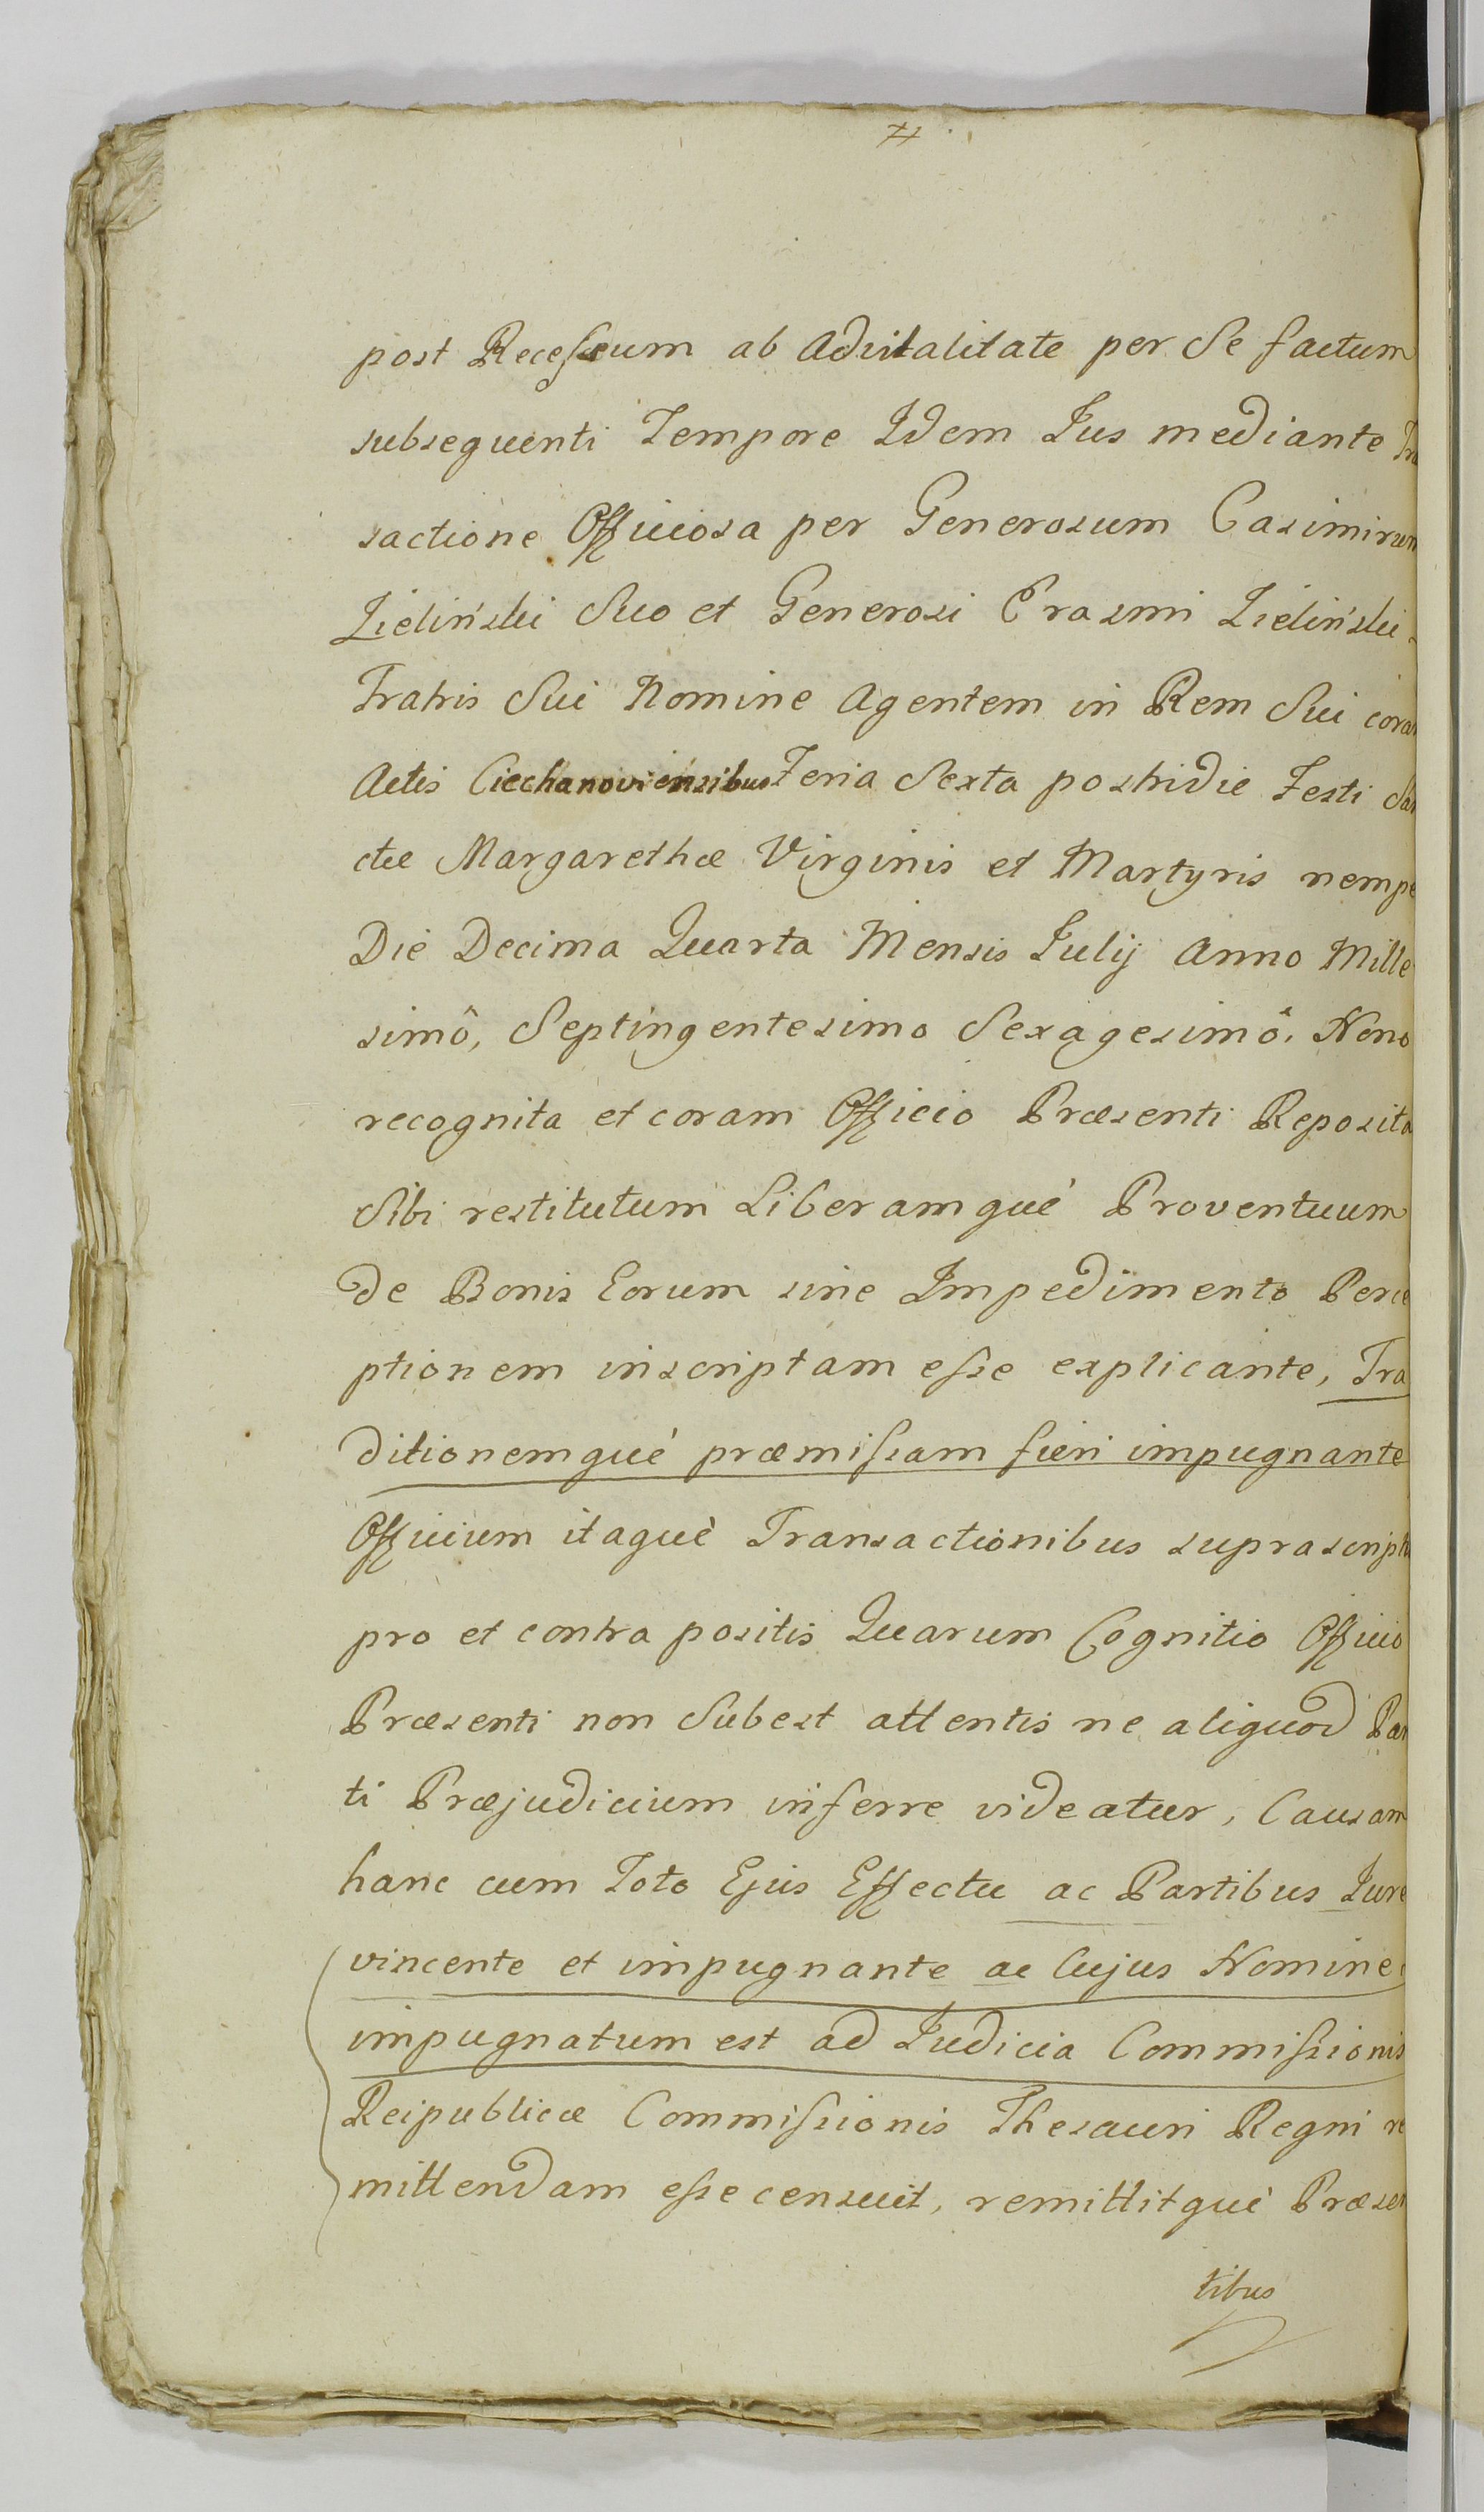 post Recessum ab Advitalitate per Se factum
subsequenti Tempore Idem Jus mediante Tra
sactione Officiosa per Generosum Casimirum
Zieliński Suo et Generosi Erasmi Zieliński
Fratris Sui Nomine Agentem in Rem Sui coram
Actis Ciechanoviensibus Feria Sexta postridie Festi San
ctæ Margarethæ Virginis et Martyris nempe
Die Decima Quarta Mensis Julij Anno Mille
simô, Septingentesimo Sexagesimô. Nono
recognita et coram Officio Præsenti Reposita
Sibi restitutum Liberamquè Proventuum
de Bonis Eorum sine Impedimento Perce
ptionem inscriptam esse explicante, Tra
ditionemquè præmissam fieri impugnante
Officium itaquè Transactionibus suprascriptis
pro et contra positis Quarum Cognitio Officio
Præsenti non Subest attentis ne aliquod Par
ti Præjudicium inferre videatur, Causam
hanc cum Toto Ejus Effectu ac Partibus Jure
vincente et impugnante ac Cujus Nomine
impugnatum est ad Judicia Commissionis
Reipublicæ Commissionis Thesauri Regni re
mittendam esse censuit, remittitquè Præsen
tibus